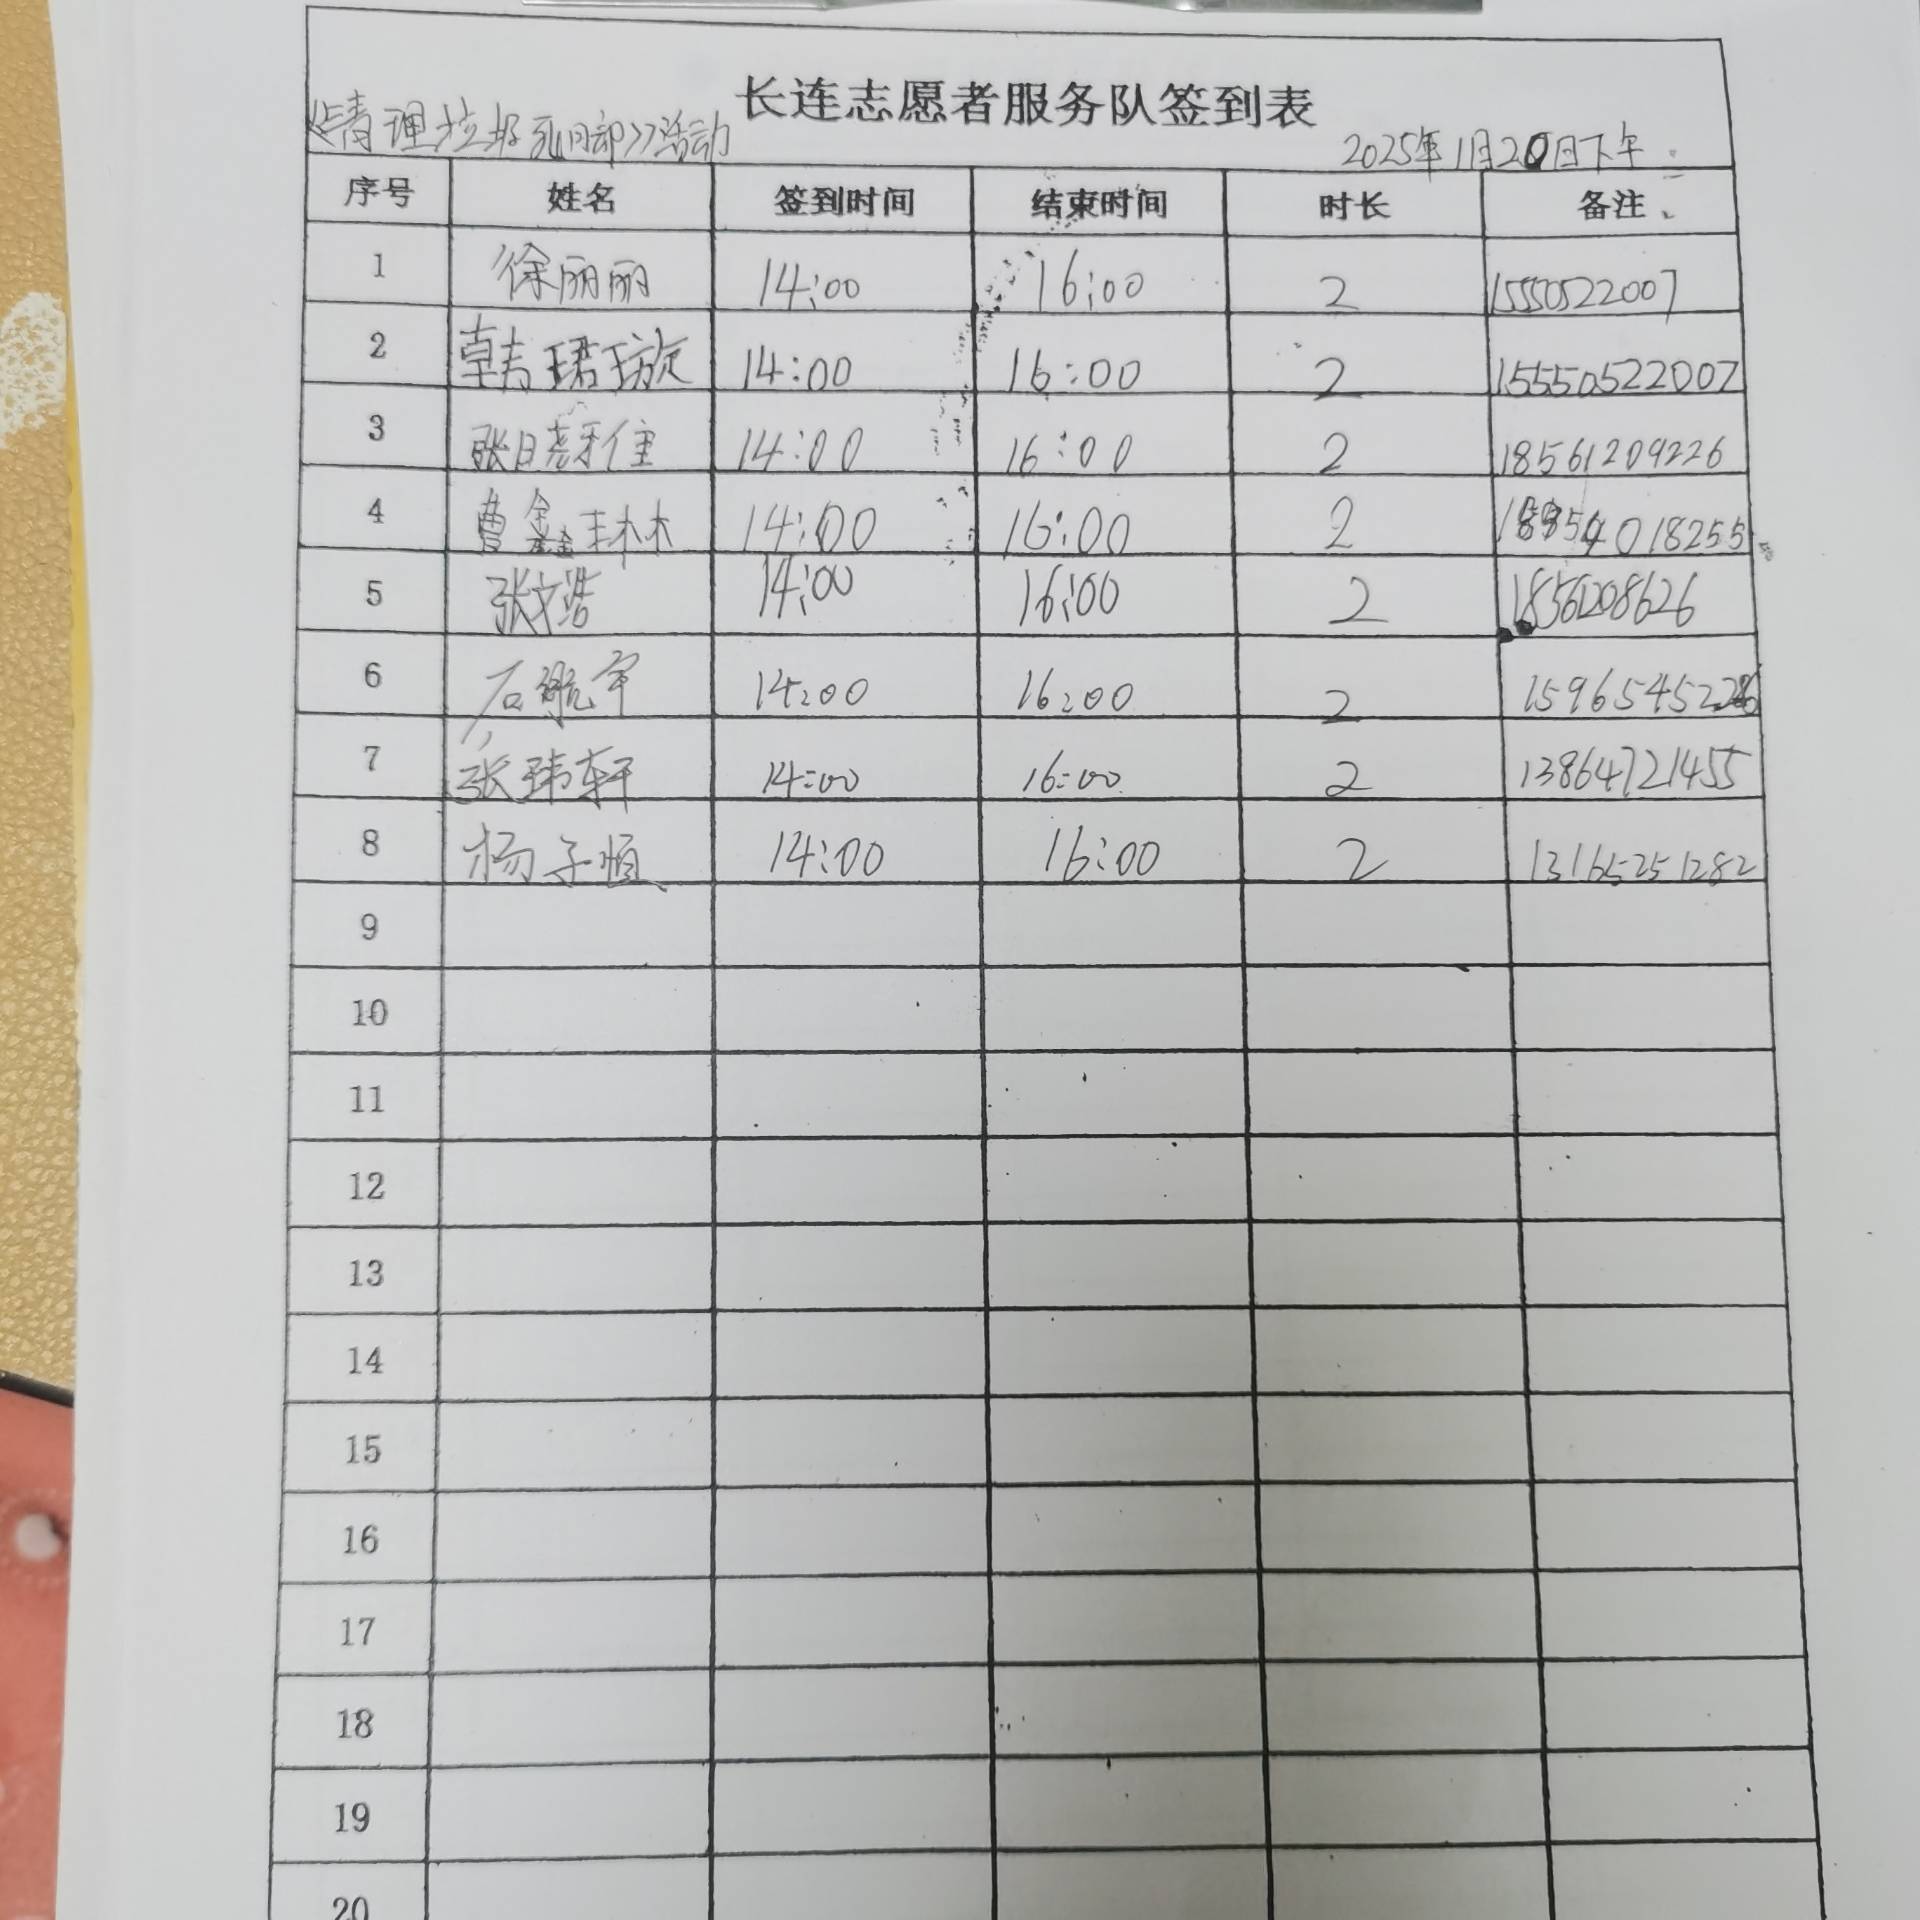 长连志愿者服务队签到表
《清理垃圾死角部》活动
2025年11月20日下午
序号 姓名 签到时间 结束时间 时长 备注
1 徐丽丽 14:00 16:00 2 15550522007
2 韩珺璇 14:00 16:00 2 15550522007
3 张 14:00 16:00 2 18561209226
4 曹鑫 14:00 16:00 2
5 张文浩 14:00 16:00 2
6 石航宇 14:00 16:00 2
7 张玮轩 14:00 16:00 2 13864721455
8 杨子恒 14:00 16:00 2 13165251282
9
10
11
12
13
14
15
16
17
18
19
20